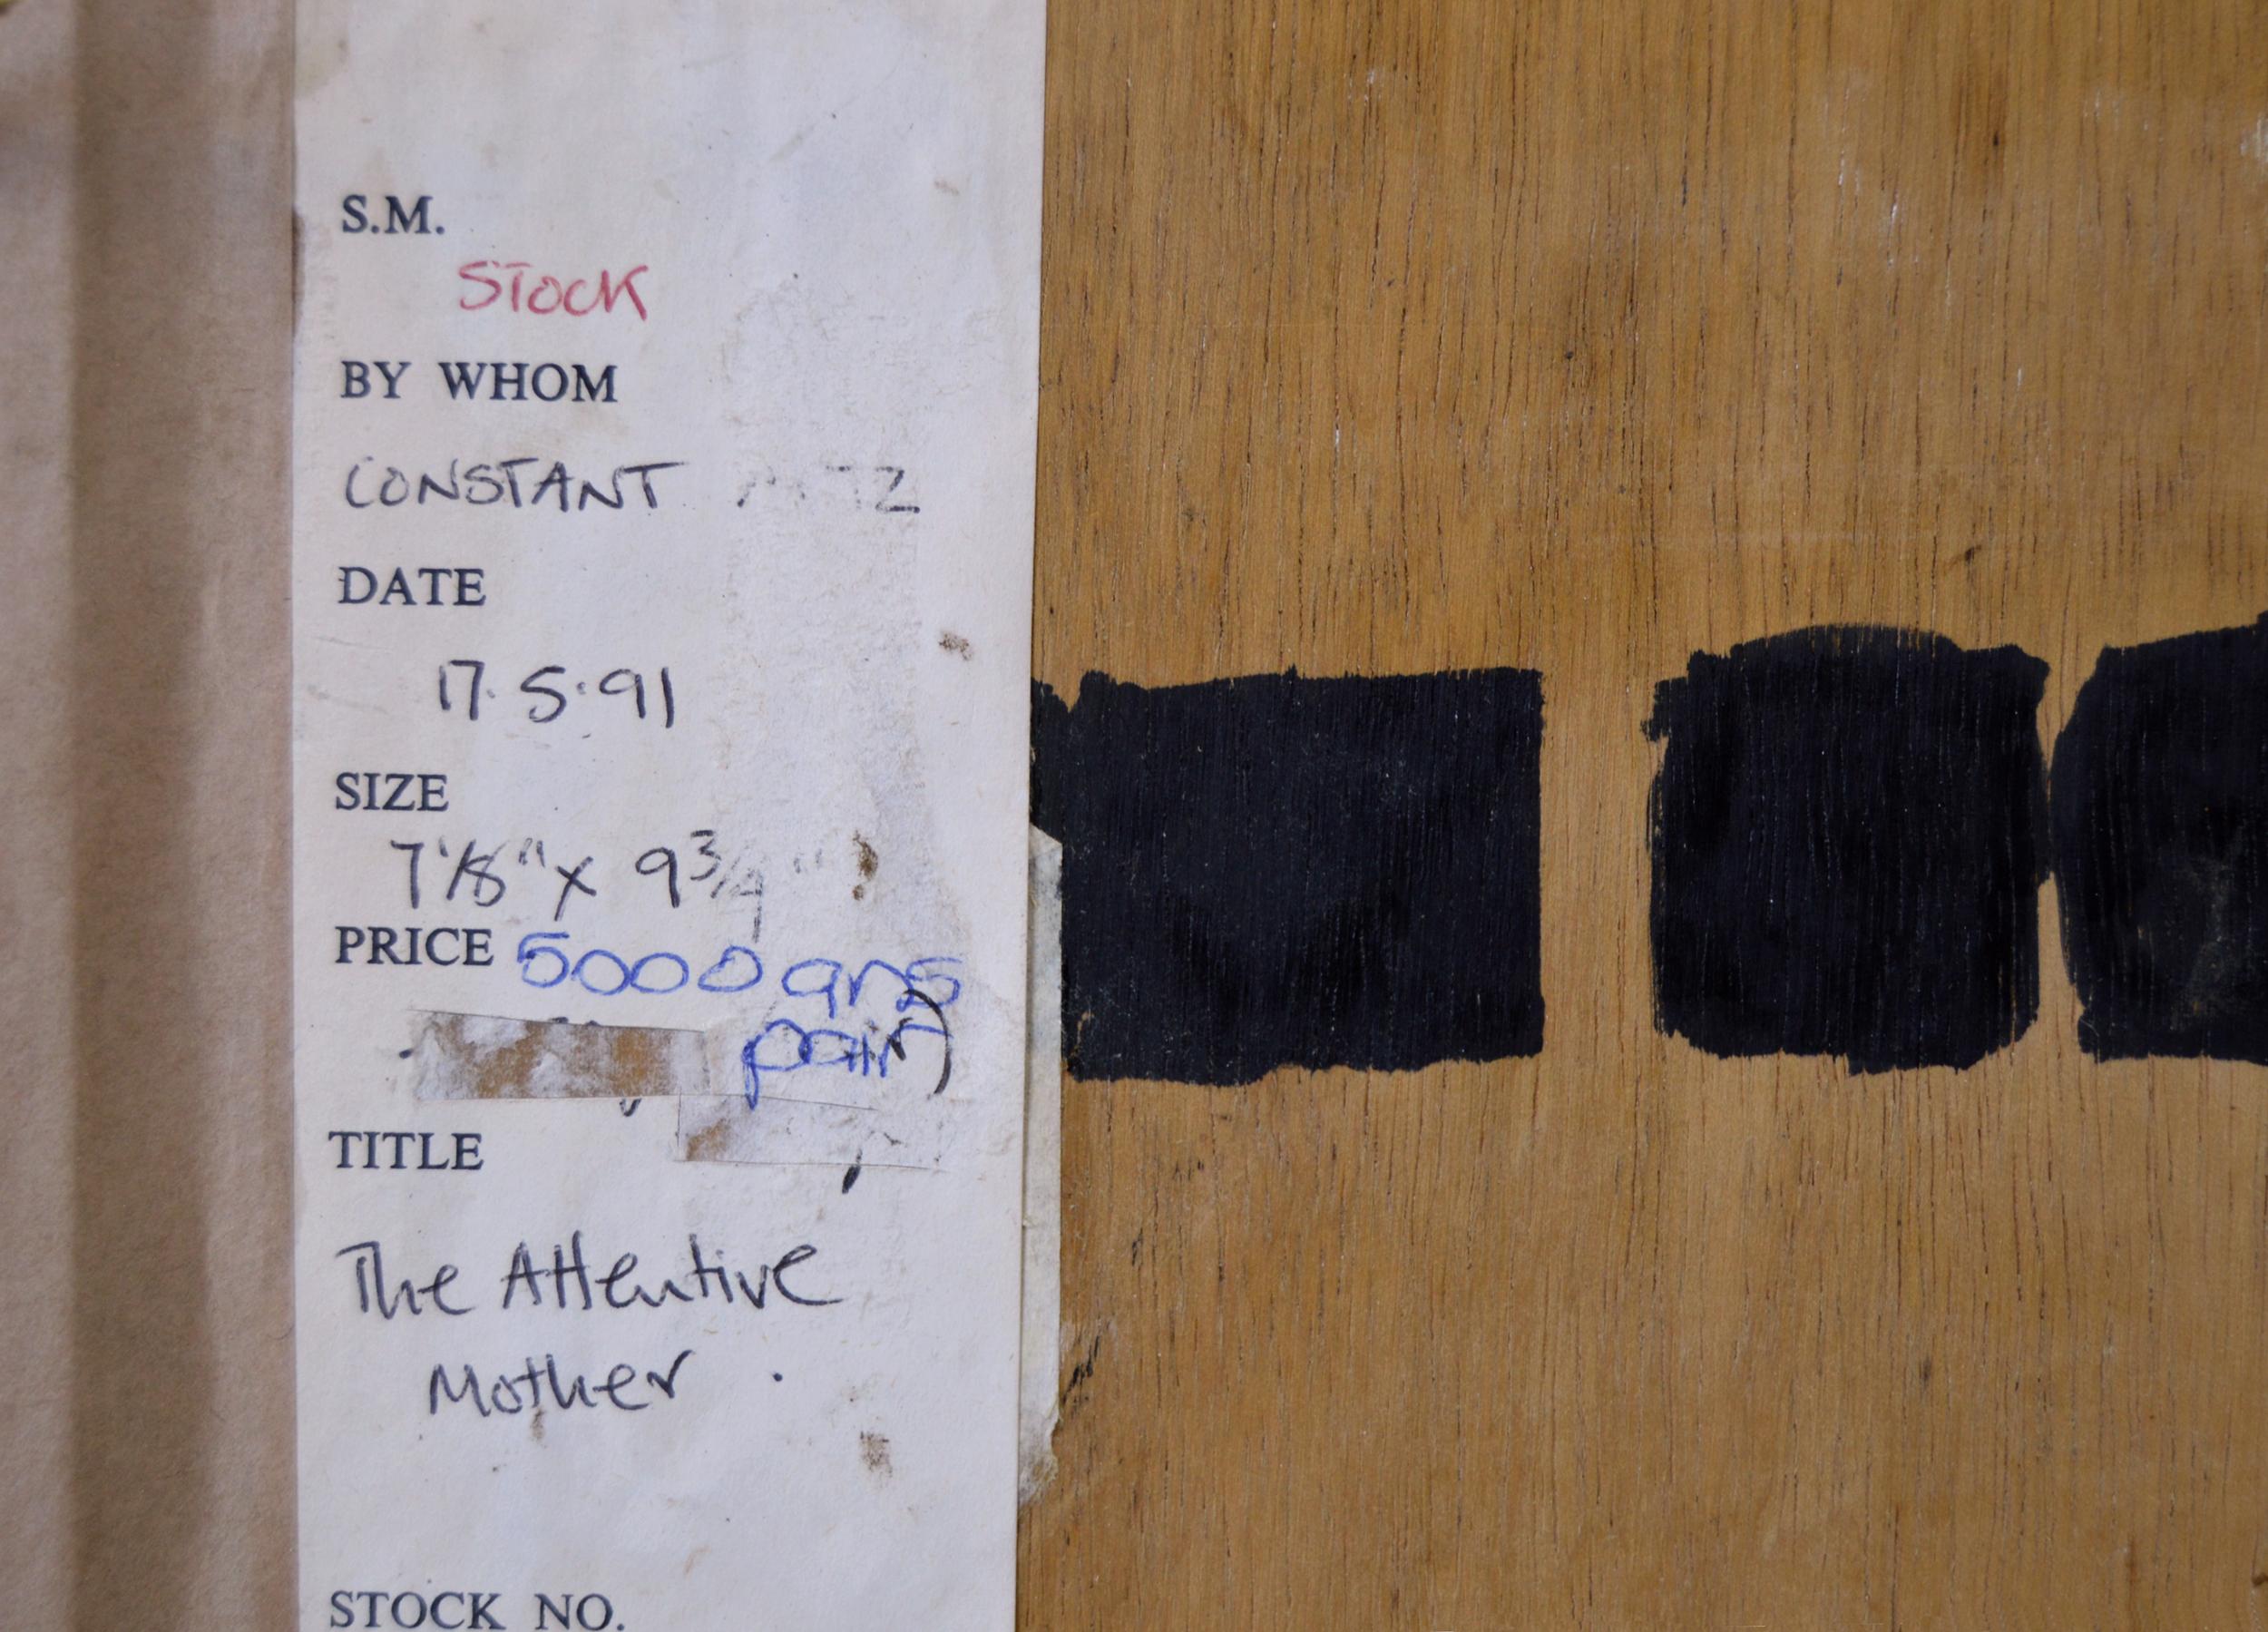 S.M.
STOCK
BY WHOM
CONSTANT
DATE
17.5.91
SIZE
7 1/8" x 9 3/4"
PRICE 5000 gns
pair)
TITLE
The Attentive
Mother.
STOCK NO.